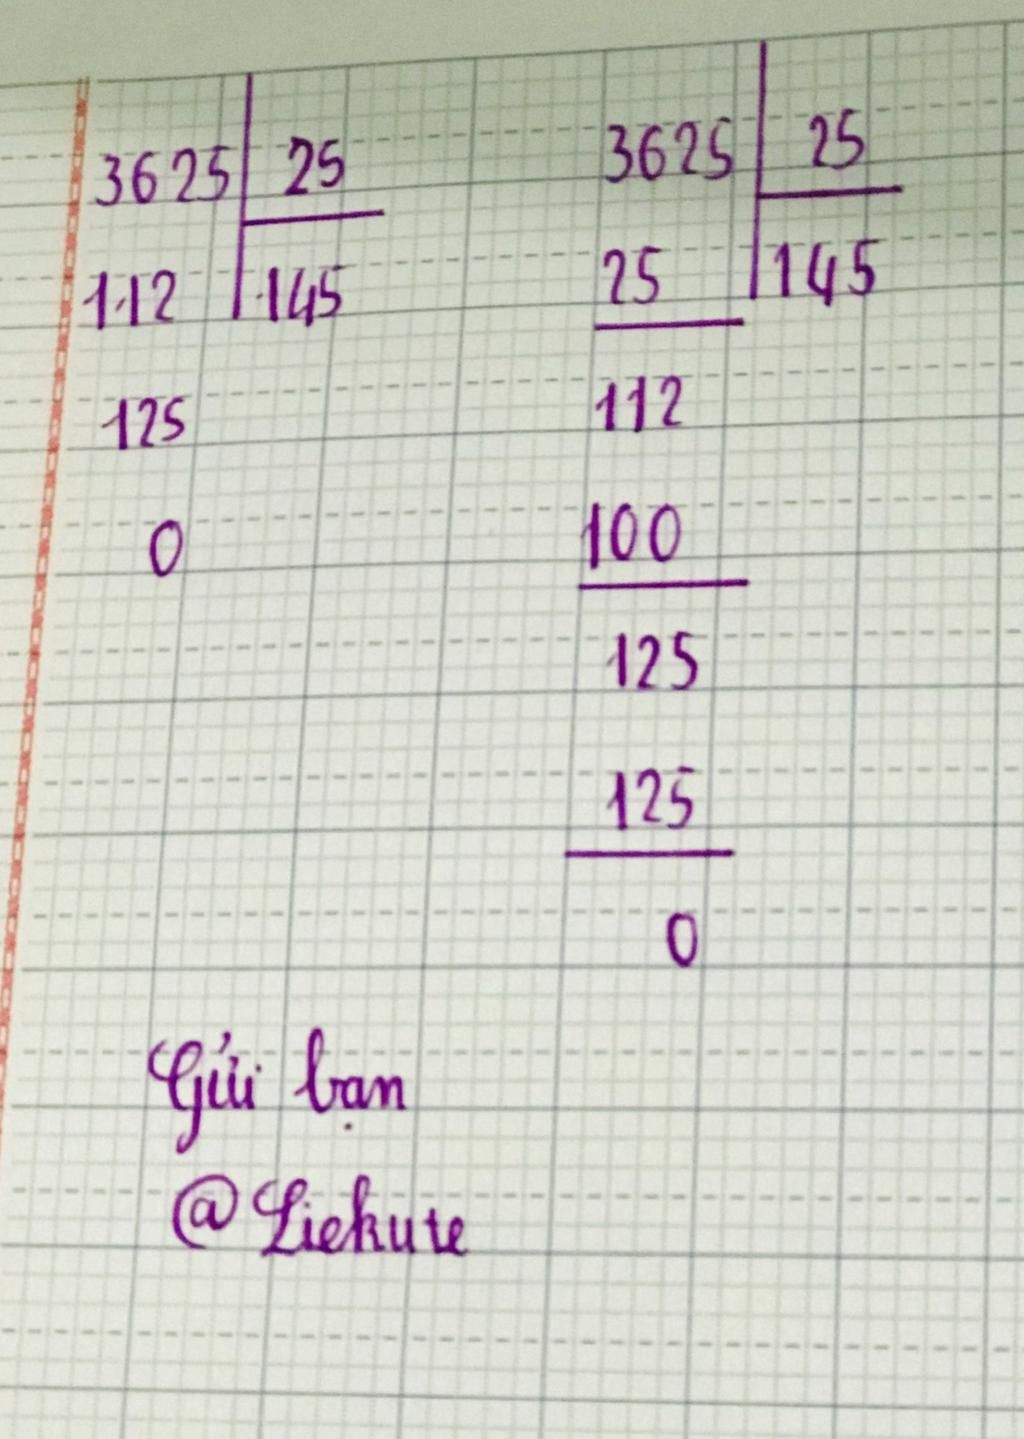 3625 25
112 145
125
0
3625 25
25 145
112
100
125
125
0
Gửi bạn
@Liekute